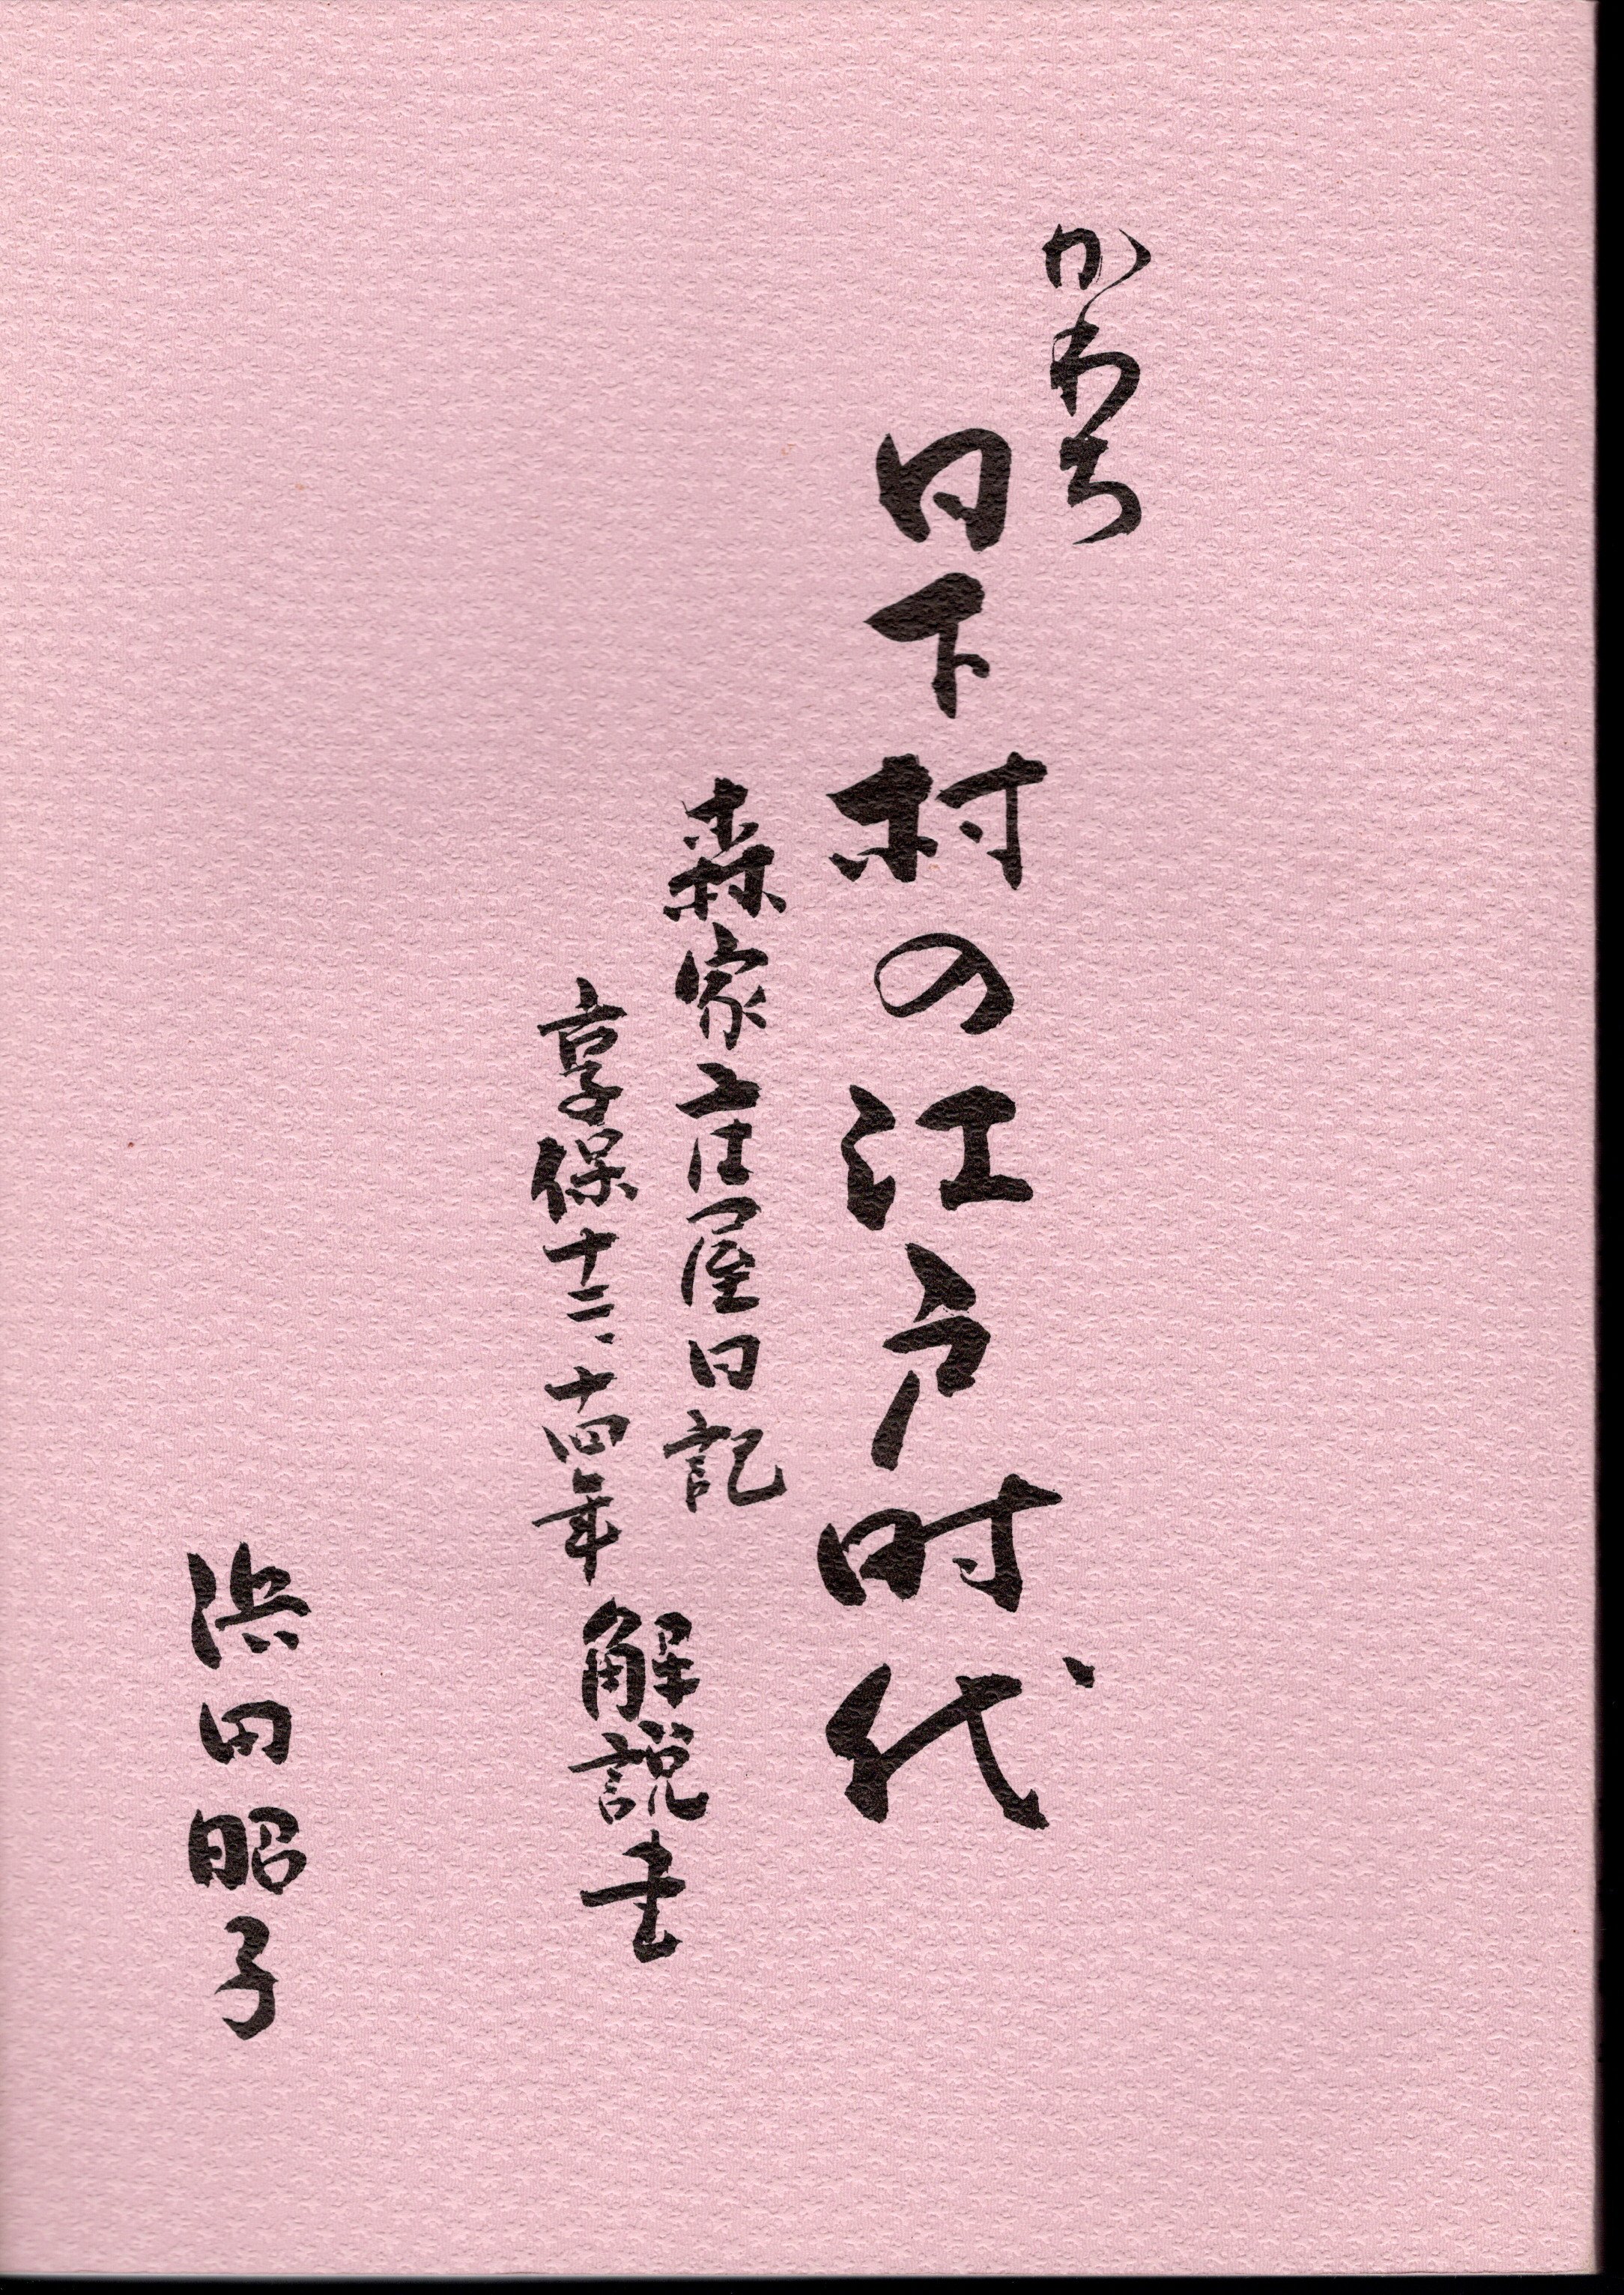 かわち
日下村の江戸時代
森家庄屋日記
享保十三、十四年
解説書
浜田昭子